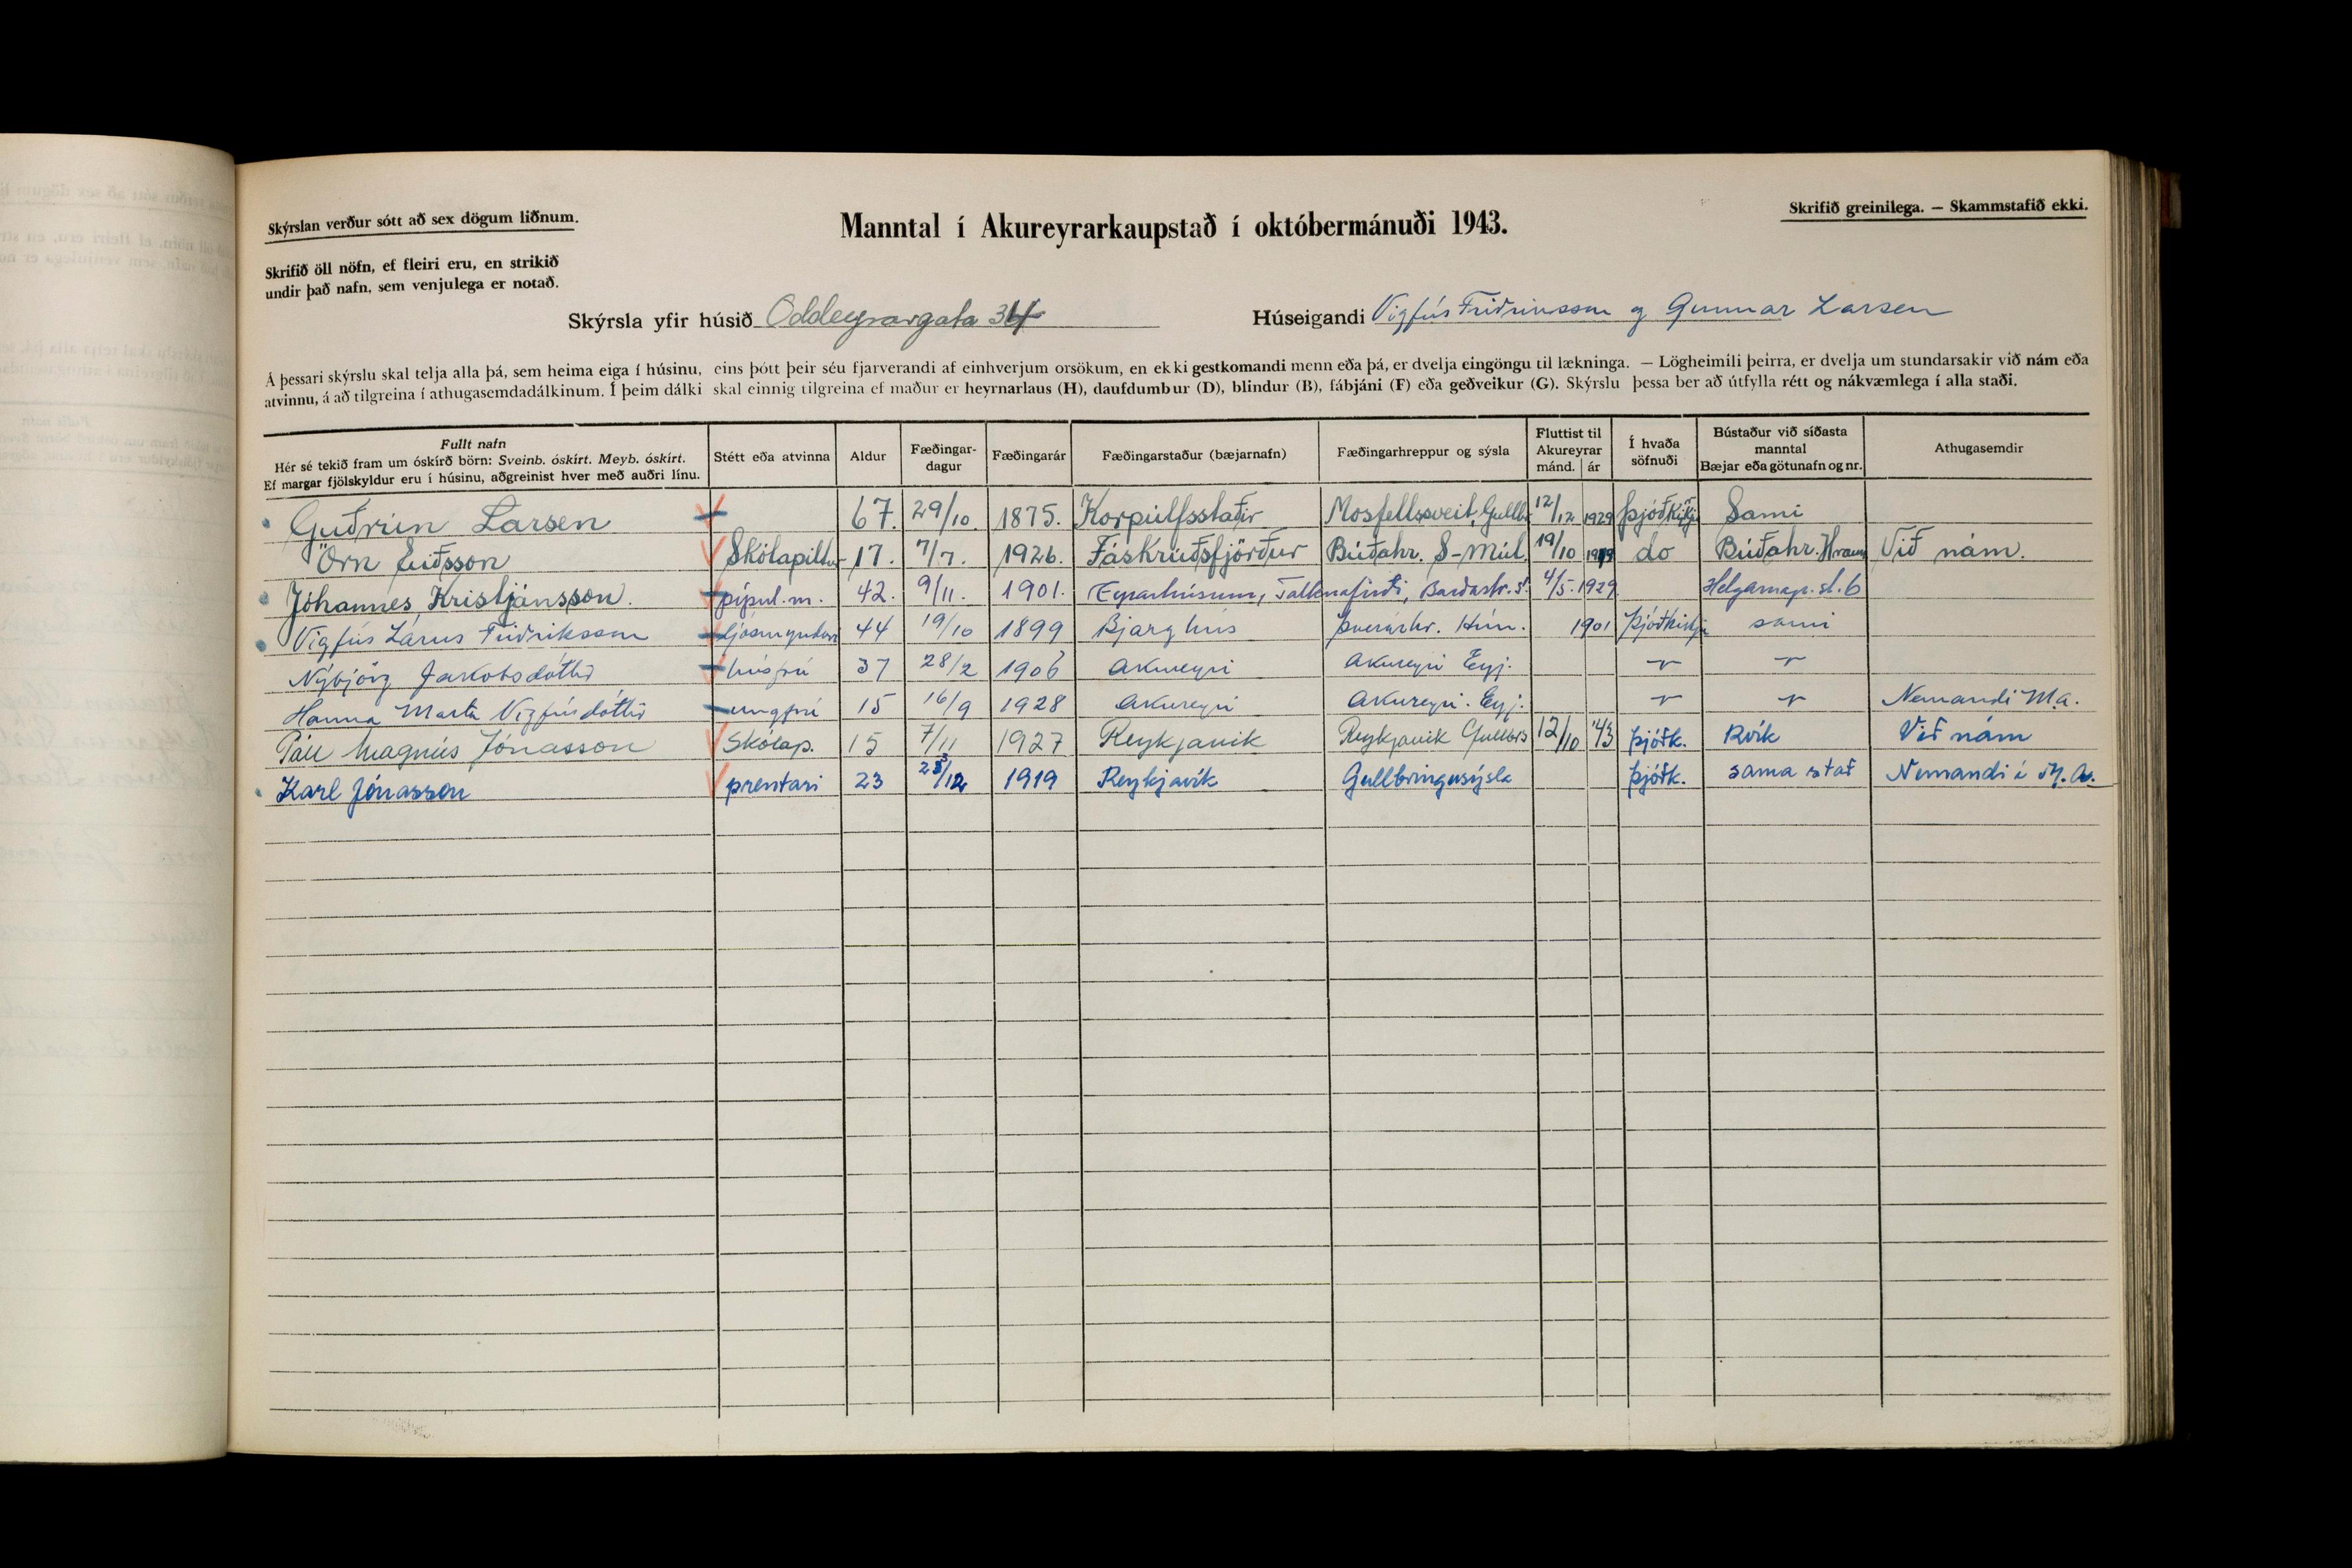 Skýrslan verður sótt að sex dögum liðnum.
Manntal í Akureyrarkaupstað í októbermánuði 1943.
Skrifið greinilega. — Skammstafið ekki.
Skrifið öll nöfn, ef fleiri eru, en strikið
undir það nafn, sem venjulega er notað.
Skýrsla yfir húsið Oddeyrargata 34 Húseigandi Vigfús Friðriksson og Gunnar Larsen
Á þessari skýrslu skal telja alla þá, sem heima eiga í húsinu, eins þótt þeir séu fjarverandi af einhverjum orsökum, en ekki gestkomandi menn eða þá, er dvelja eingöngu til lækninga. — Lögheimili þeirra, er dvelja um stundarsakir við nám eða
atvinnu, á að tilgreina í athugasemdadálkinum. Í þeim dálki skal einnig tilgreina ef maður er heyrnarlaus (H), daufdumbur (D), blindur (B), fábjáni (F) eða geðveikur (G). Skýrslu þessa ber að útfylla rétt og nákvæmlega í alla staði.
Fullt nafn
Hér sé tekið fram um óskírð börn: Sveinb. óskírt. Meyb. óskírt.
Ef margar fjölskyldur eru í húsinu, aðgreinist hver með auðri línu.
Stétt eða atvinna
Aldur
Fæðingar-
dagur
Fæðingarár
Fæðingarstaður (bæjarnafn)
Fæðingarhreppur og sýsla
Fluttist til
Akureyrar
mánd. ár
Í hvaða
söfnuði
Bústaður við síðasta
manntal
Bæjar eða götunafn og nr.
Athugasemdir
Guðrún Larsen 67. 29/10. 1875. Korpúlfsstaðir Mosfellssveit, Gullbr 12/12 1929 Þjóðkirkju Sami
Örn Eiðsson Skólapiltur 17. 7/7. 1926. Fáskrúðsfjörður Búðahr. S-Múl. 19/10 do Búðahr. Hraun Við nám.
Jóhannes Kristjánsson. pípul.m. 42. 9/11. 1901. Eyrarhúsum, Tálknafirði, Barðastr.s. 4/5. 1929 Helgamagr.st. 6
Vigfús Lárus Friðriksson ljósmyndari 44 19/10 1899 Bjarghús Þverárhr. Hún. 1901 Þjóðkirkju sami
Nýbjörg Jakobsdóttir húsfrú 37 28/2 1906 Akureyri Akureyri Eyj. " "
Hanna Marta Vigfúsdóttir ungfrú 15 16/9 1928 Akureyri Akureyri. Eyj. " " Nemandi M.a.
Páll Magnús Jónasson Skólap. 15 7/11 1927 Reykjavík Reykjavík Gullbrs 12/10 '43 Þjóðk. Rvík Við nám
Karl Jónasson prentari 23 23/12 1919 Reykjavík Gullbringusýsla Þjóðk. sama stað Nemandi í M.A.